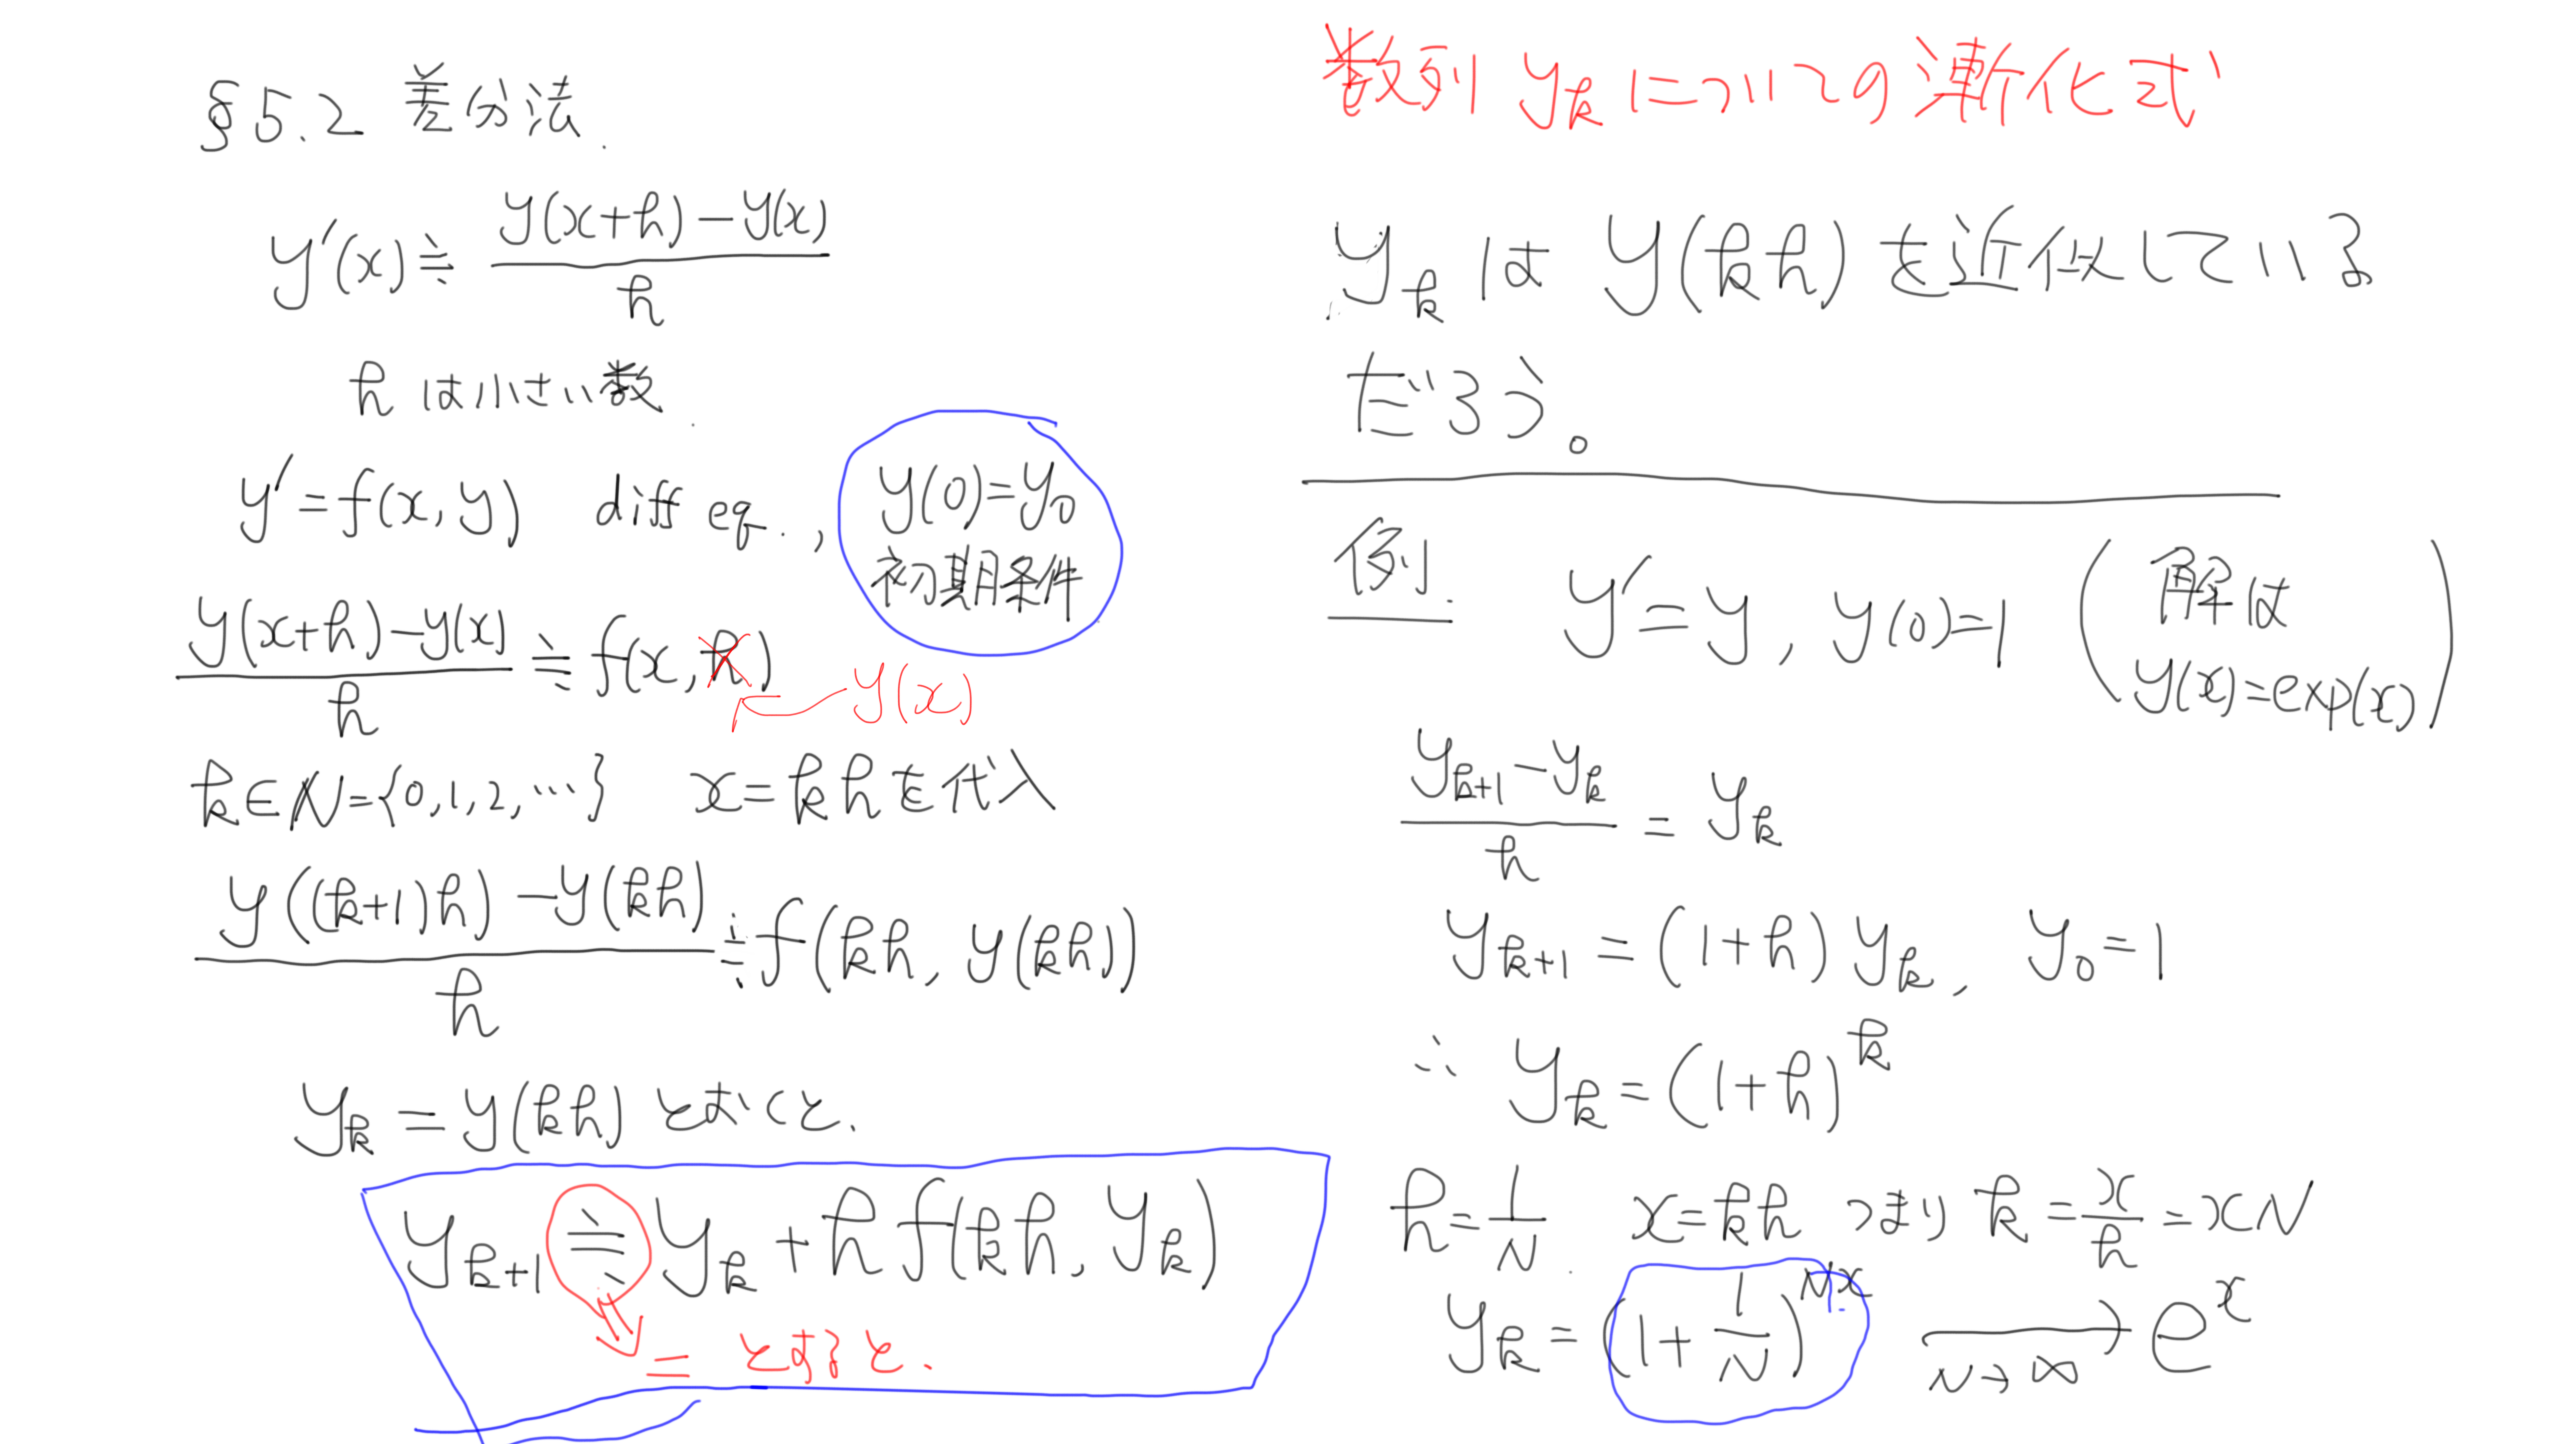 §5.2 差分法.
y'(x) ≒ (y(x+h) − y(x)) / h
hは小さい数.
y' = f(x, y) diff eq.,
y(0) = y₀
初期条件
(y(x+h) − y(x)) / h ≒ f(x, h)
y(x)
k ∈ N = {0, 1, 2, …} x = kh を代入
(y((k+1)h) − y(kh)) / h ≒ f(kh, y(kh))
y_k = y(kh) とおくと、
y_{k+1} ≒ y_k + h f(kh, y_k)
= とすると、
数列 y_k についての漸化式
y_k は y(kh) を近似している
だろう。
例. y' = y, y(0) = 1 (解は y(x) = exp(x))
(y_{k+1} − y_k) / h = y_k
y_{k+1} = (1+h) y_k, y₀ = 1
∴ y_k = (1+h)^k
h = 1/N. x = kh つまり k = x/h = xN
y_k = (1 + 1/N)^{Nx} ⟶ e^x
N→∞